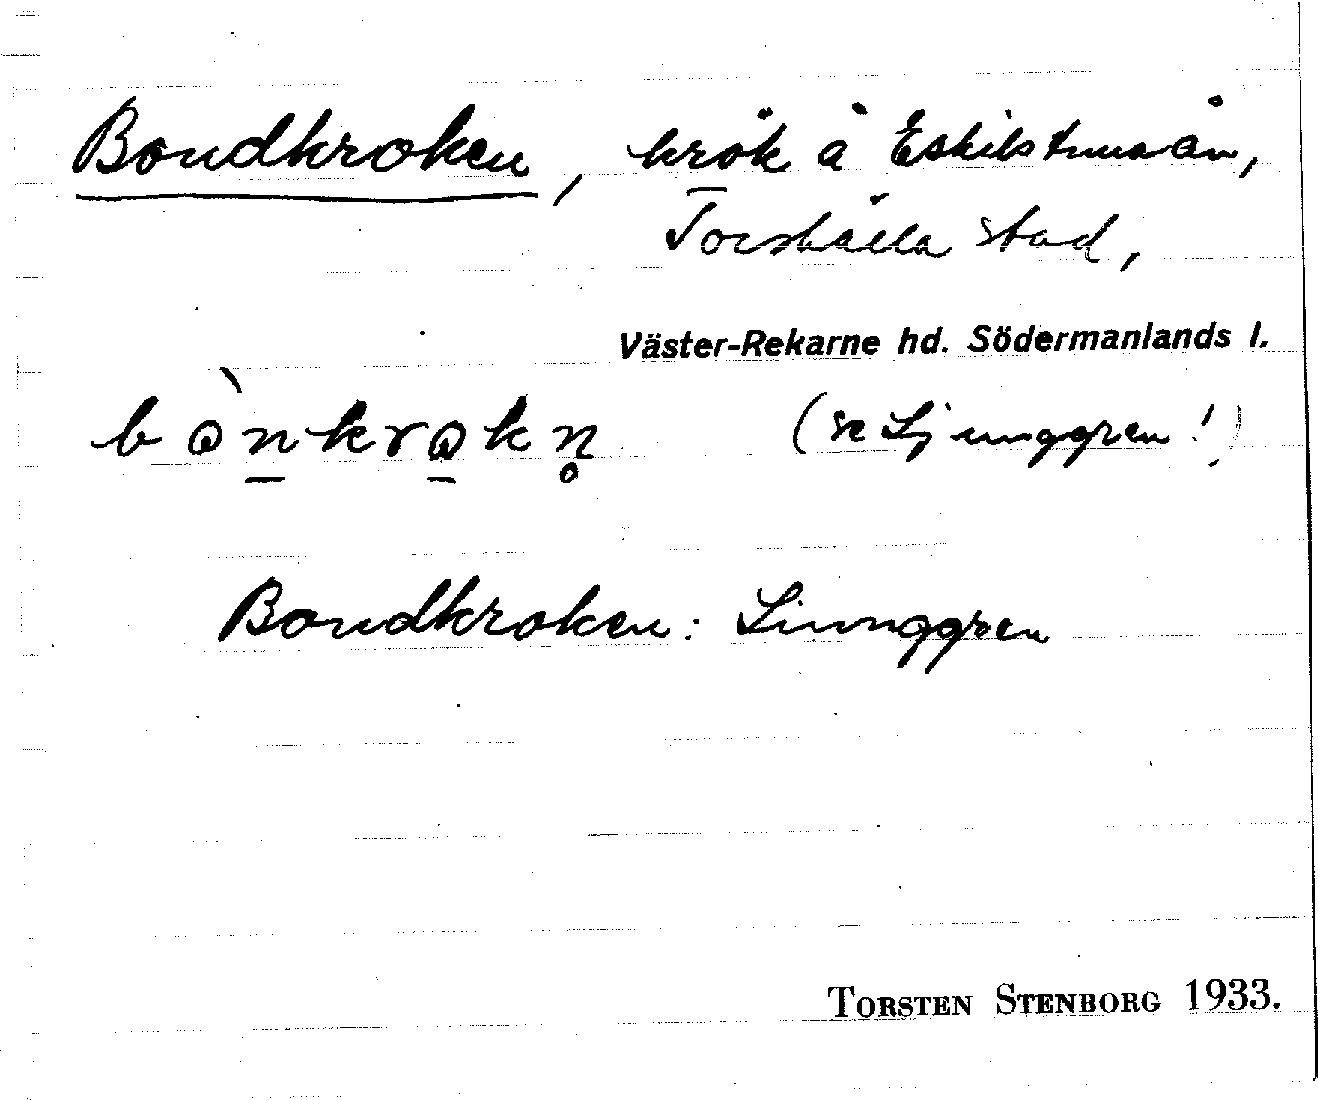 Bondkroken, krök å Eskilstunaån,
Torshälla stad,
Väster-Rekarne hd. Södermanlands l.
bònkrokn̥ (se Ljunggren!)
Bondkroken: Ljunggren
TORSTEN STENBORG 1933.